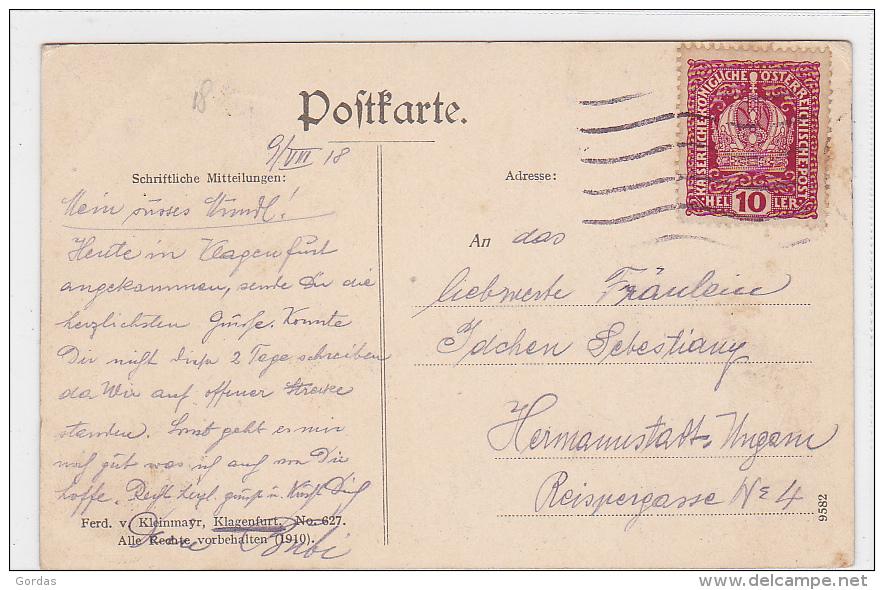 18
Postkarte.
9/VII 18
Schriftliche Mitteilungen:
Adresse:
KAISERLICHE KÖNIGLICHE ÖSTERREICHISCHE POST
HEL 10 LER
Mein süsses Mundl!
Heute in Klagenfurt
angekommen, sende Dir die
herzlichsten Grüße. Konnte
Dir nicht diese 2 Tage schreiben
da Wir auf offener Strecke
standen. Sonst geht es mir
noch gut was ich auch von Dir
hoffe. Recht herzl. grüßt u. küßt Dich
Dein Bubi
An das
liebwerte Fräulein
Idchen Sebestiany
Hermannstadt, Ungarn
Reispergasse № 4
Ferd. v. Kleinmayr, Klagenfurt. No. 627.
Alle Rechte vorbehalten (1910).
9582
Gordas
delcampe.net